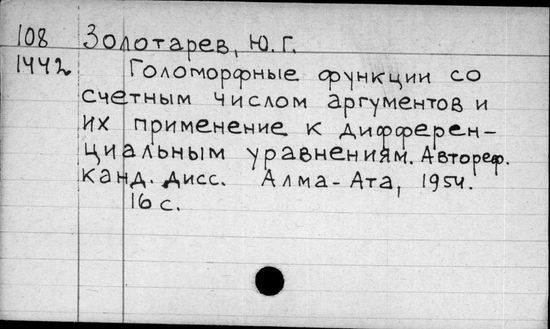 108 Золотарев, Ю. Г.
1442 Голоморфные функции со
счетным числом аргументов и
их применение к дифферен-
циальным уравнениям. Автореф.
канд. дисс. Алма-Ата, 1954.
16 с.